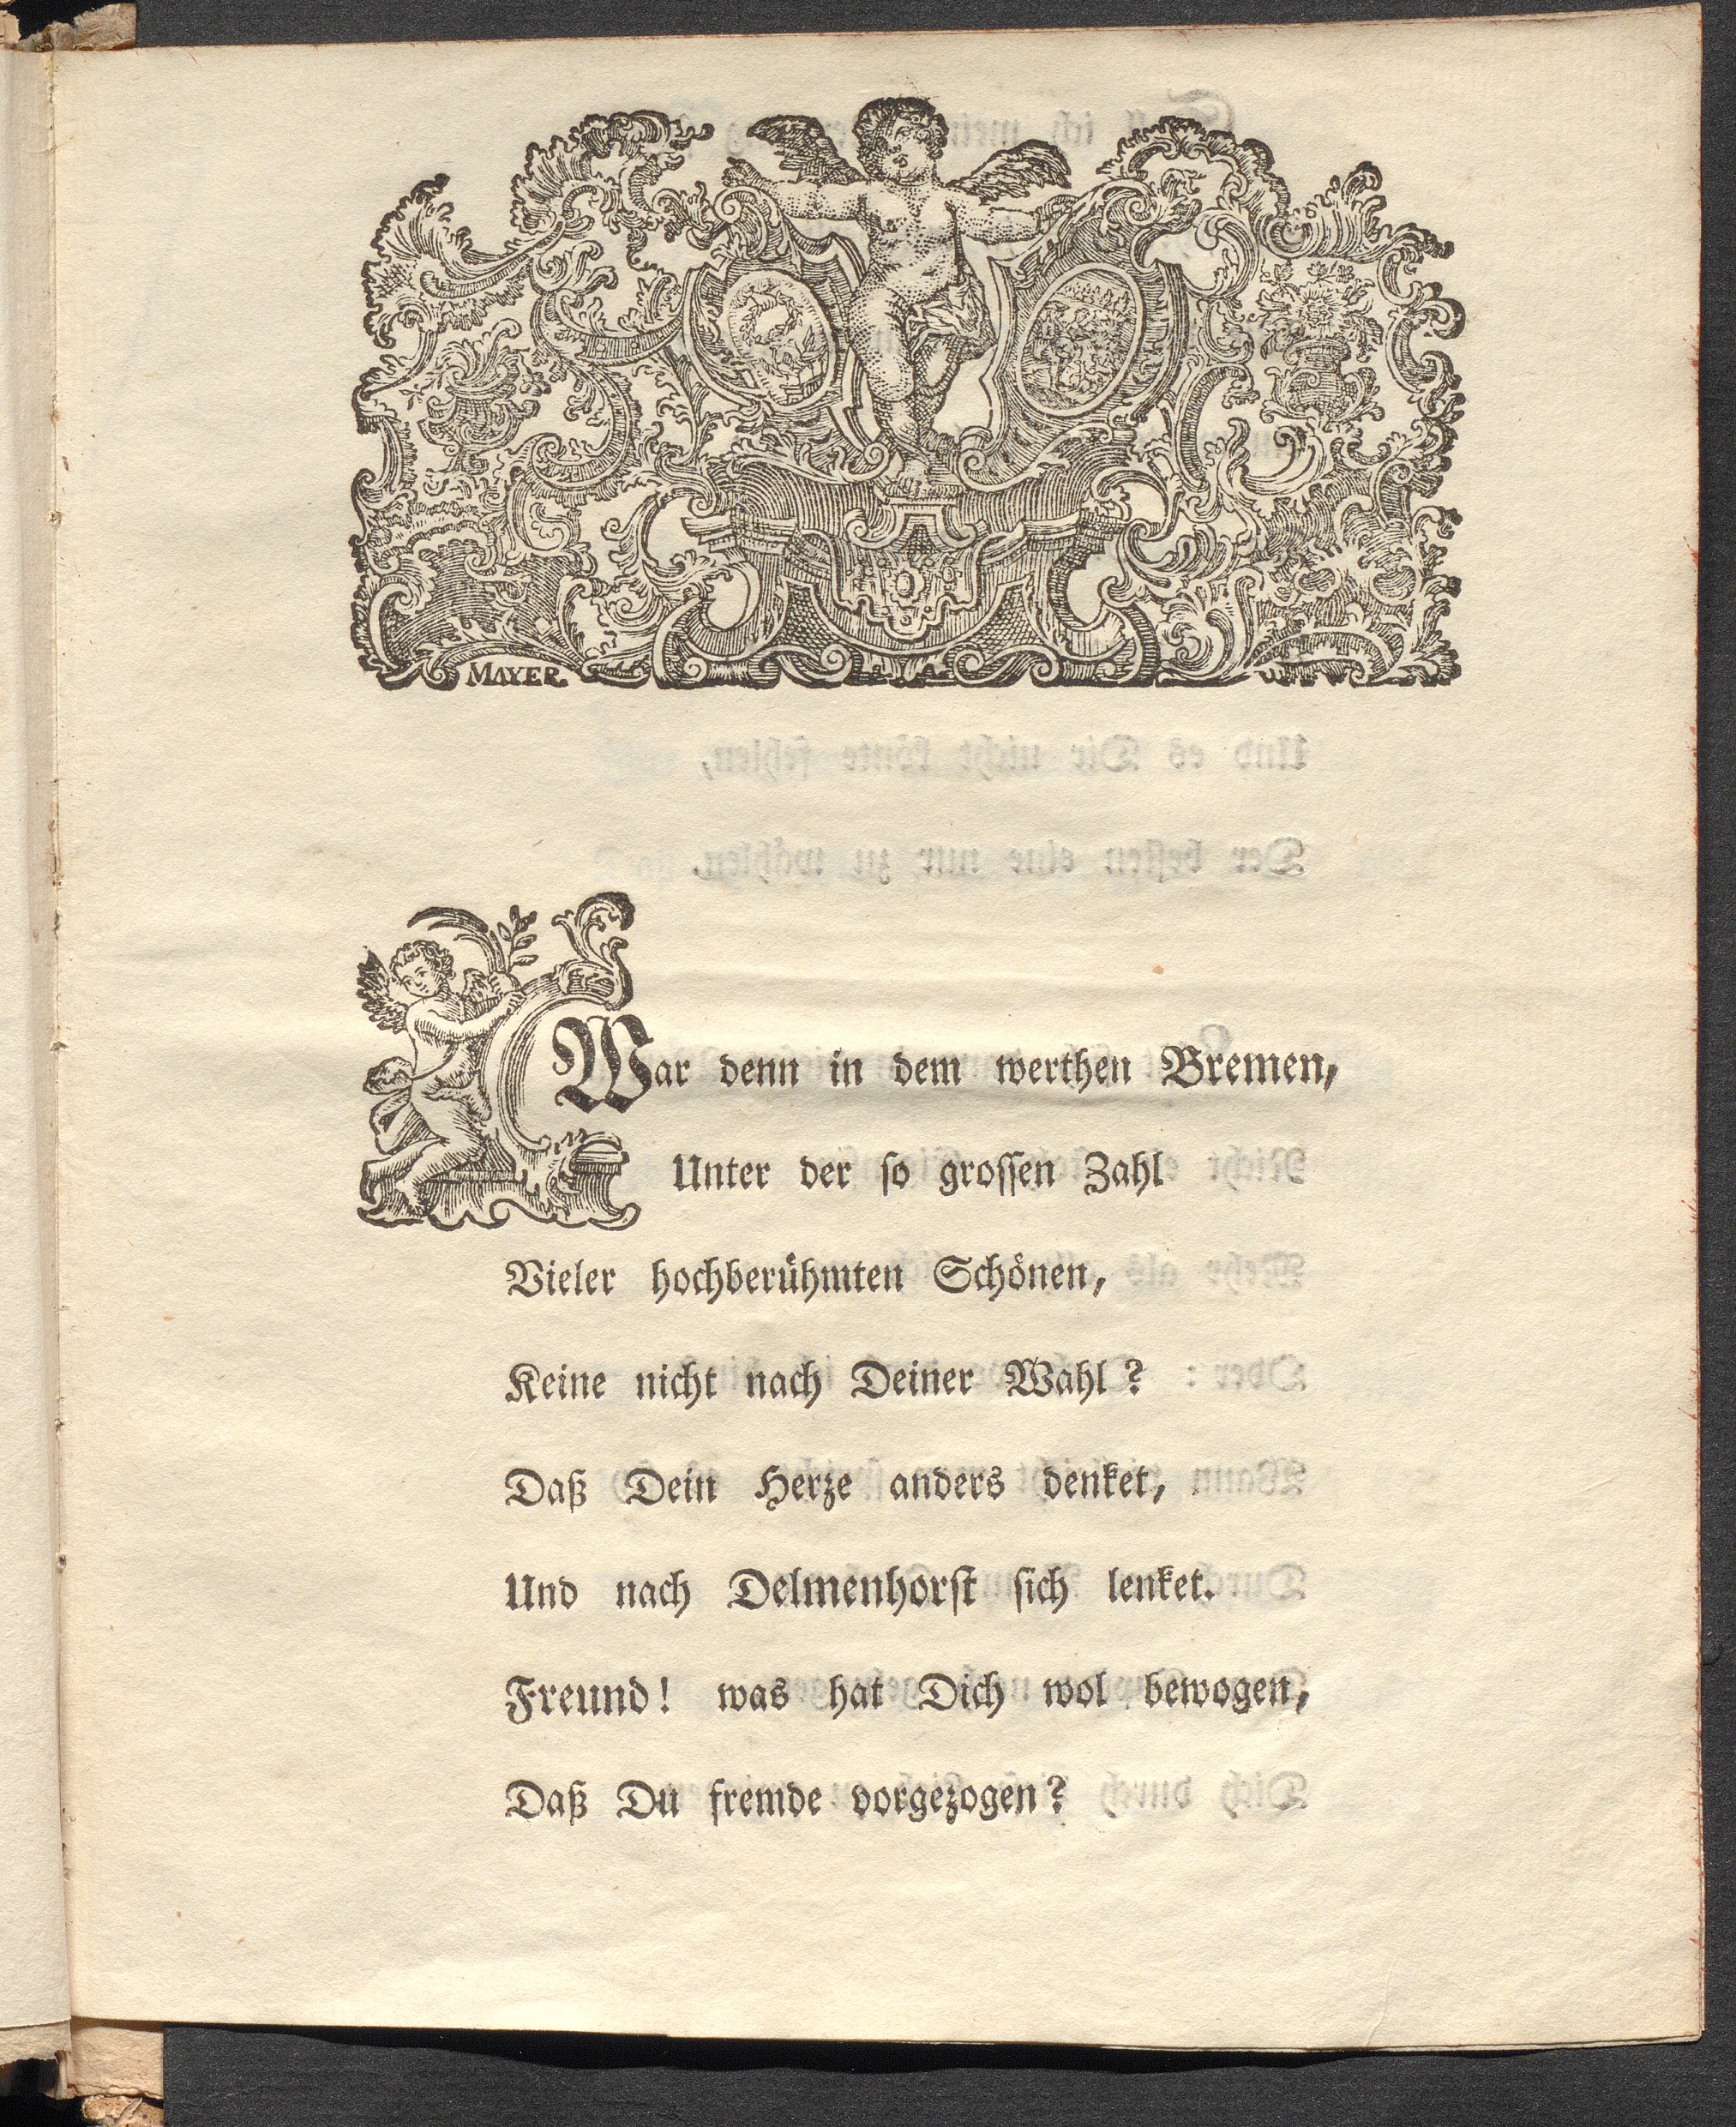 MAYER.
War denn in dem werthen Bremen,
Unter der so grossen Zahl
Vieler hochberühmten Schönen,
Keine nicht nach Deiner Wahl?
Daß Dein Herze anders denket,
Und nach Delmenhorst sich lenket.
Freund! was hat Dich wol bewogen,
Daß Du fremde vorgezogen?